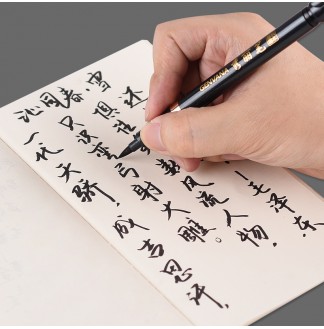 沁园春、雪
一代天骄，成吉思汗，
只识弯弓射大雕。
俱往 数风流人物，
还
—毛泽东
GENVANA